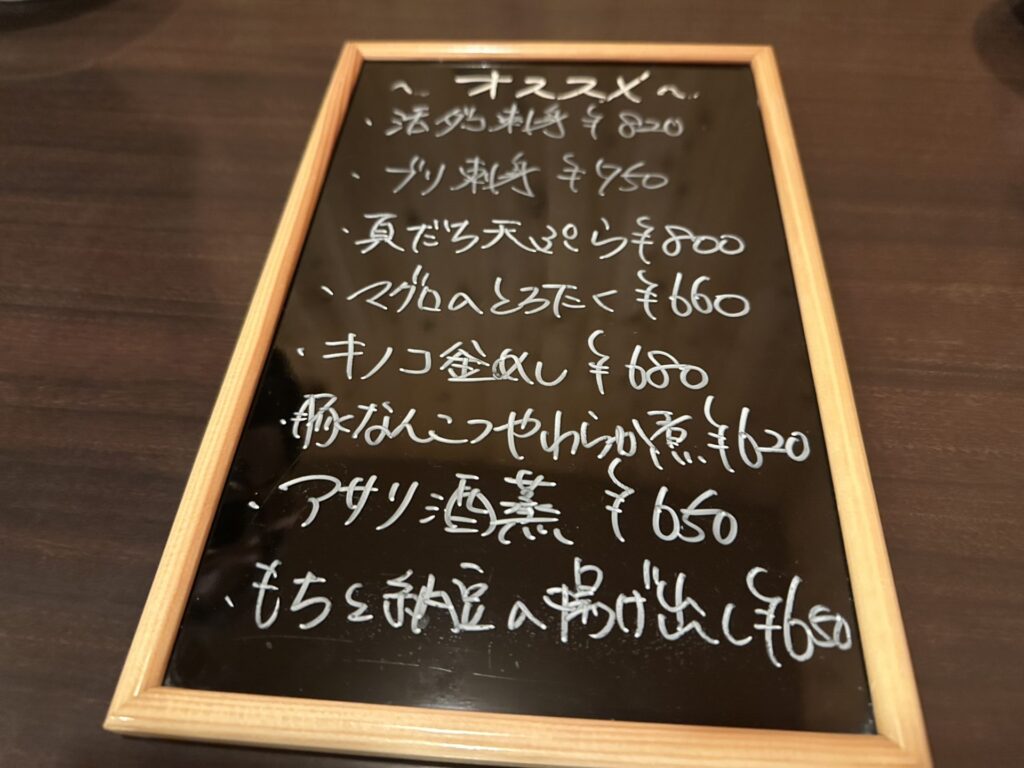 ～ オススメ ～
・活ダコ刺身 ¥820
・ブリ刺身 ¥750
・真だち天ぷら ¥800
・マグロのとろたく ¥660
・キノコ釜めし ¥680
・豚なんこつやわらか煮 ¥620
・アサリ酒蒸 ¥650
・もちと納豆の揚げ出し ¥650